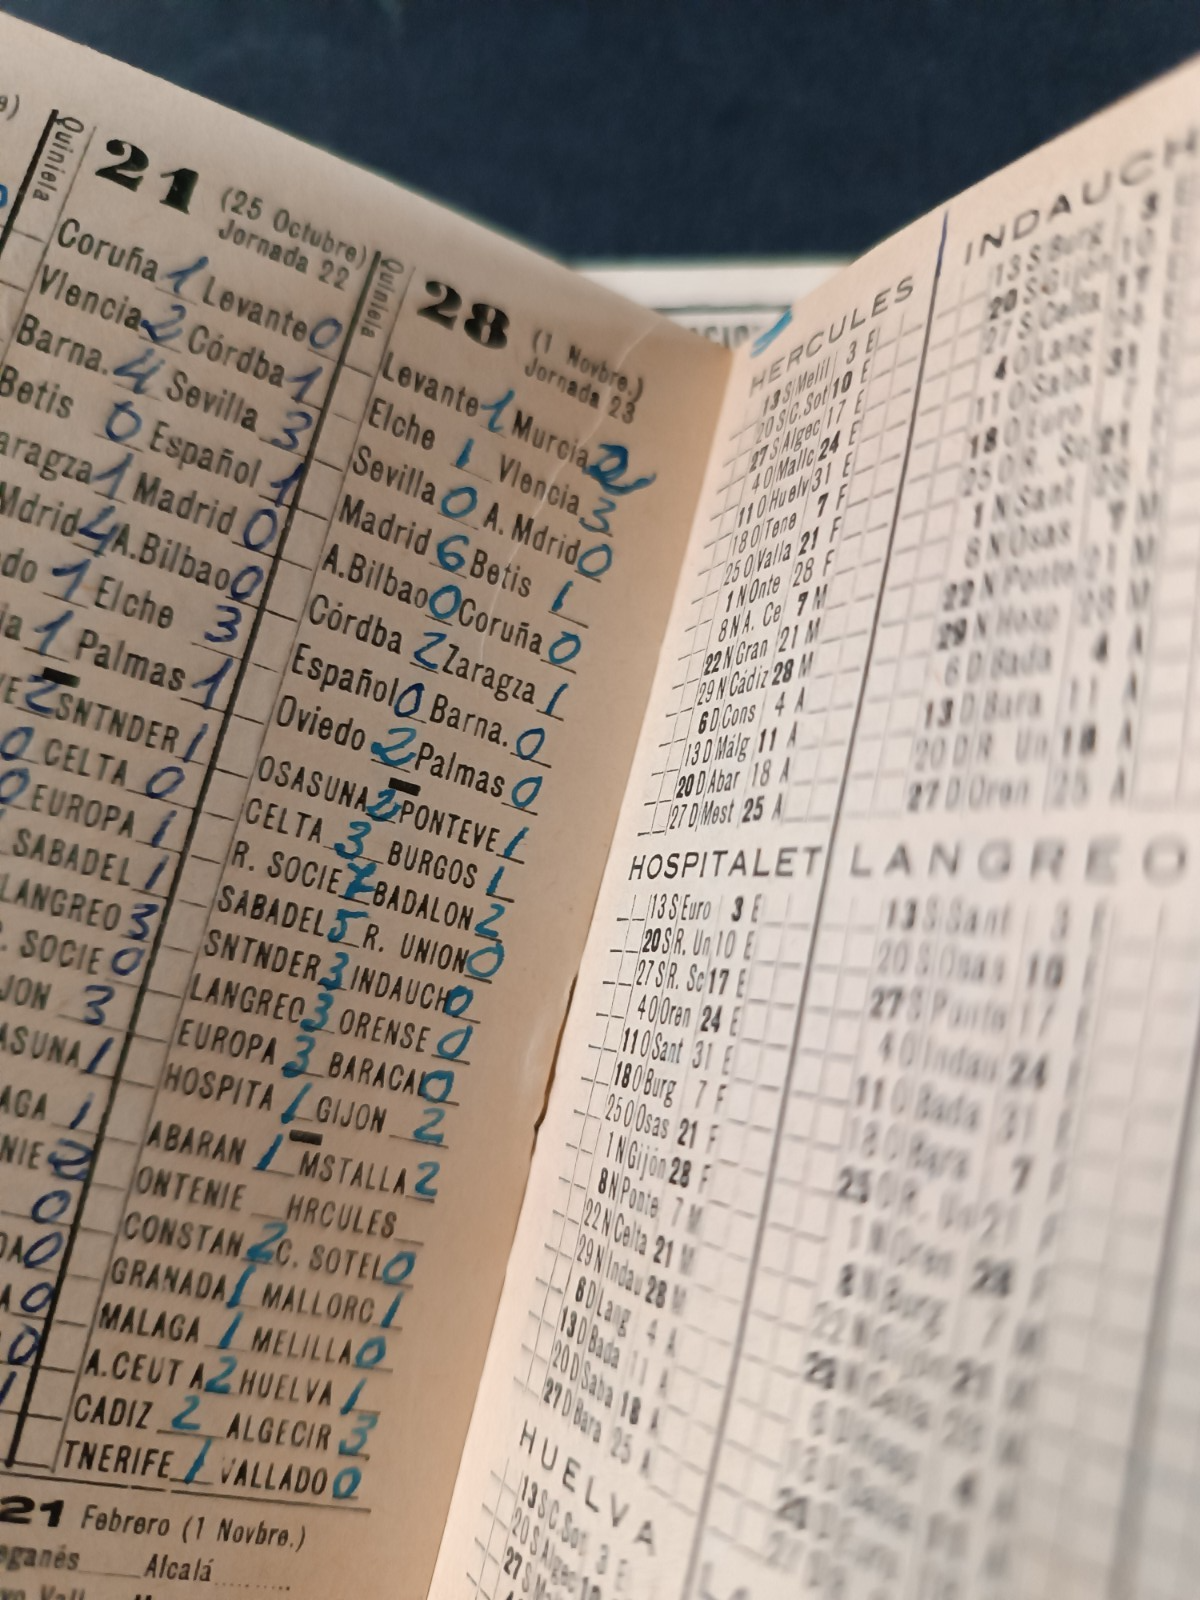 Quiniela
21 (25 Octubre)
Jornada 22
Coruña 1 Levante 0
Vlencia 2 Córdba 1
Barna. 4 Sevilla 3
Betis 0 Español 1
aragza 1 Madrid 0
Mdrid 4 A.Bilbao 0
do 1 Elche 3
ia 1 Palmas 1
VE 2 SNTNDER 1
0 CELTA 0
0 EUROPA 1
SABADEL 1
LANGREO 3
. SOCIE 0
JON 3
ASUNA 1
AGA 1
NIE 2
0
DA 0
A 0
0
1
Quiniela
28 (1 Novbre.)
Jornada 23
Levante 1 Murcia 2
Elche 1 Vlencia 3
Sevilla 0 A. Mdrid 0
Madrid 6 Betis 1
A.Bilbao 0 Coruña 0
Córdba 2 Zaragza 1
Español 0 Barna. 0
Oviedo 2 Palmas 0
OSASUNA 2 PONTEVE 1
CELTA 3 BURGOS 1
R. SOCIE BADALON 2
SABADEL 5 R. UNION 0
SNTNDER 3 INDAUCH 0
LANGREO 3 ORENSE 0
EUROPA 3 BARACAL 0
HOSPITA 1 GIJON 2
ABARAN 1 MSTALLA 2
ONTENIE HRCULES
CONSTAN 2 C. SOTEL 0
GRANADA 1 MALLORC 1
MALAGA 1 MELILLA 0
A.CEUTA 2 HUELVA 1
CADIZ 2 ALGECIR 3
TNERIFE 1 VALLADO 0
21 Febrero (1 Novbre.)
eganés Alcalá
HERCULES
13 S Melil 3 E
20 S C. Sot 10 E
27 S Algec 17 E
4 O Mallc 24 E
11 O Huelv 31 E
18 O Tene 7 F
25 O Valla 21 F
1 N Onte 28 F
8 N A. Ce 7 M
22 N Gran 21 M
29 N Cádiz 28 M
6 D Cons 4 A
13 D Málg 11 A
20 D Abar 18 A
27 D Mest 25 A
HOSPITALET
13 S Euro 3 E
20 S R. Un 10 E
27 S R. Sc 17 E
4 O Oren 24 E
11 O Sant 31 E
18 O Burg 7 F
25 O Osas 21 F
1 N Gijón 28 F
8 N Ponte 7 M
22 N Celta 21 M
29 N Indau 28 M
6 D Lang 4 A
13 D Bada 11 A
20 D Saba 18 A
27 D Bara 25 A
HUELVA
13 S C. Sot 3 E
20 S Algec 10
27 S
INDAUCH
13 S Burg 3
20 S Gijón 10
27 S Celta 17
4 O Lang 24
11 O Saba 31
18 O Euro
25 O R. Sc 21
1 N Sant 28
8 N Osas 7 M
22 N Ponte 21 M
29 N Hosp 28 M
6 D Bada 4 A
13 D Bara 11 A
20 D R. Un 18 A
27 D Oren 25 A
LANGREO
13 S Sant 3 E
20 S Osas 10
27 S Ponte 17
4 O Indau 24
11 O Bada 31
18 O Bara 7
25 O R. Un 21
1 N Oren 28
8 N Burg 7
22 N Gijón 21
29 N Celta 28